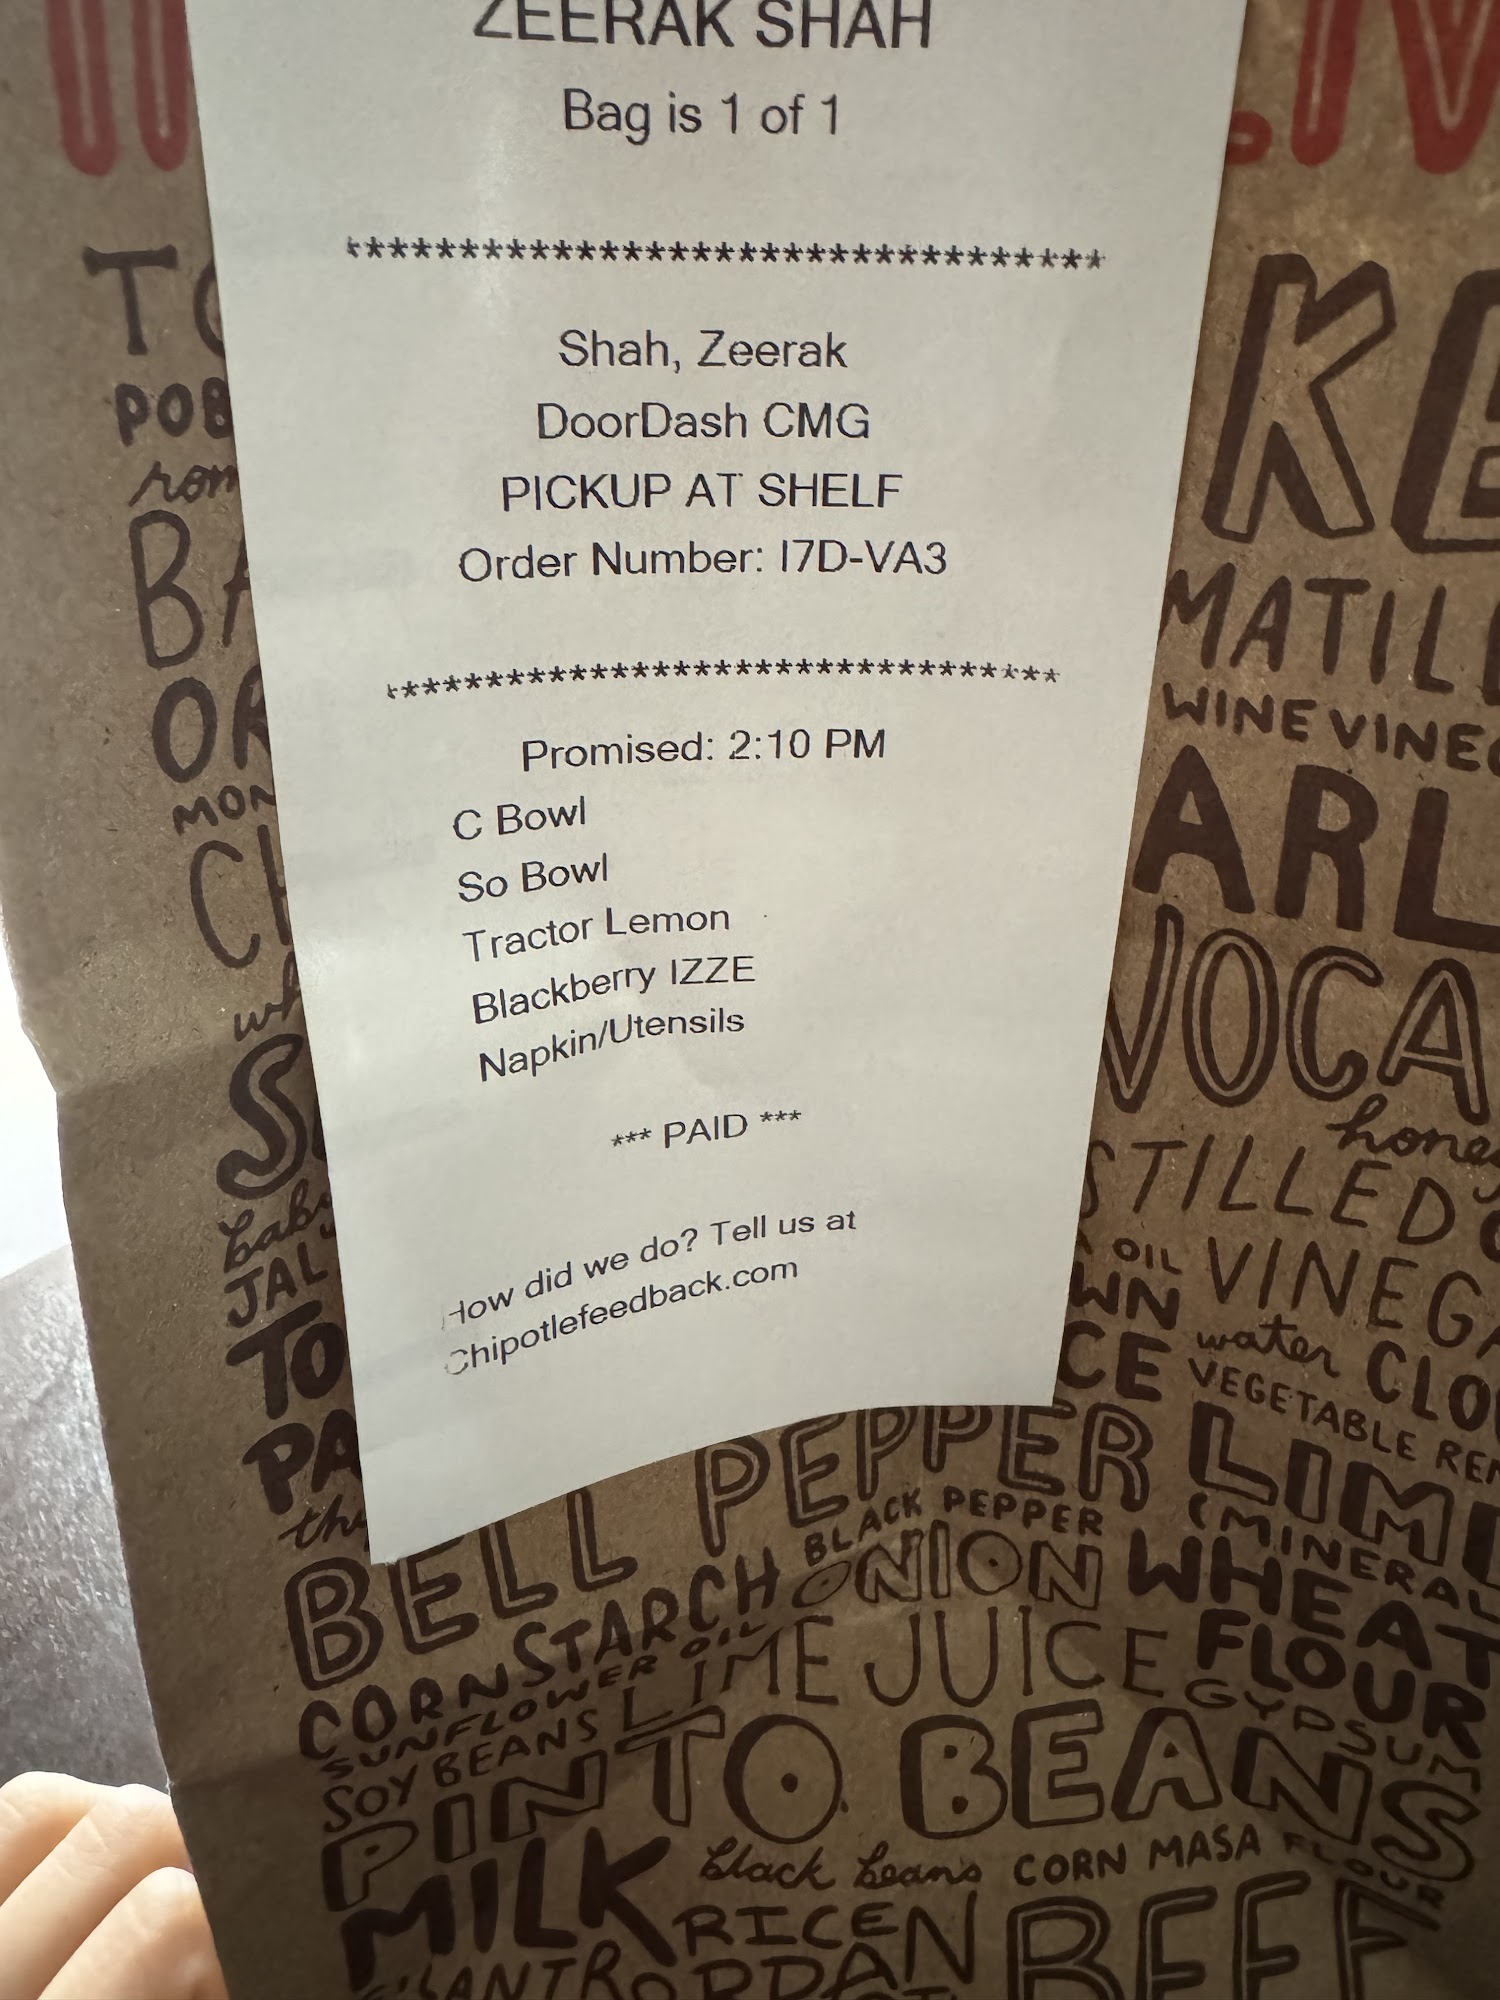 ZEERAK SHAH
Bag is 1 of 1
*********************************
Shah, Zeerak
DoorDash CMG
PICKUP AT SHELF
Order Number: I7D-VA3
*********************************
Promised: 2:10 PM
C Bowl
So Bowl
Tractor Lemon
Blackberry IZZE
Napkin/Utensils
*** PAID ***
How did we do? Tell us at
Chipotlefeedback.com
KE
MATIL
WINE VINEG
ARL
VOCA
honey
STILLED
OIL VINEGA
WN
CE water CLO
VEGETABLE REN
TO
POB
rom
BA
OR
MON
CH
wh
S
baby
JAL
TO
PA
th
BELL PEPPER LIME
BLACK PEPPER (MINERAL
CORNSTARCH ONION WHEAT
SUNFLOWER OIL LIME JUICE FLOUR
SOY BEANS GYPSUM
PINTO BEANS
MILK black beans CORN MASA FLOUR
RICE
BEEF